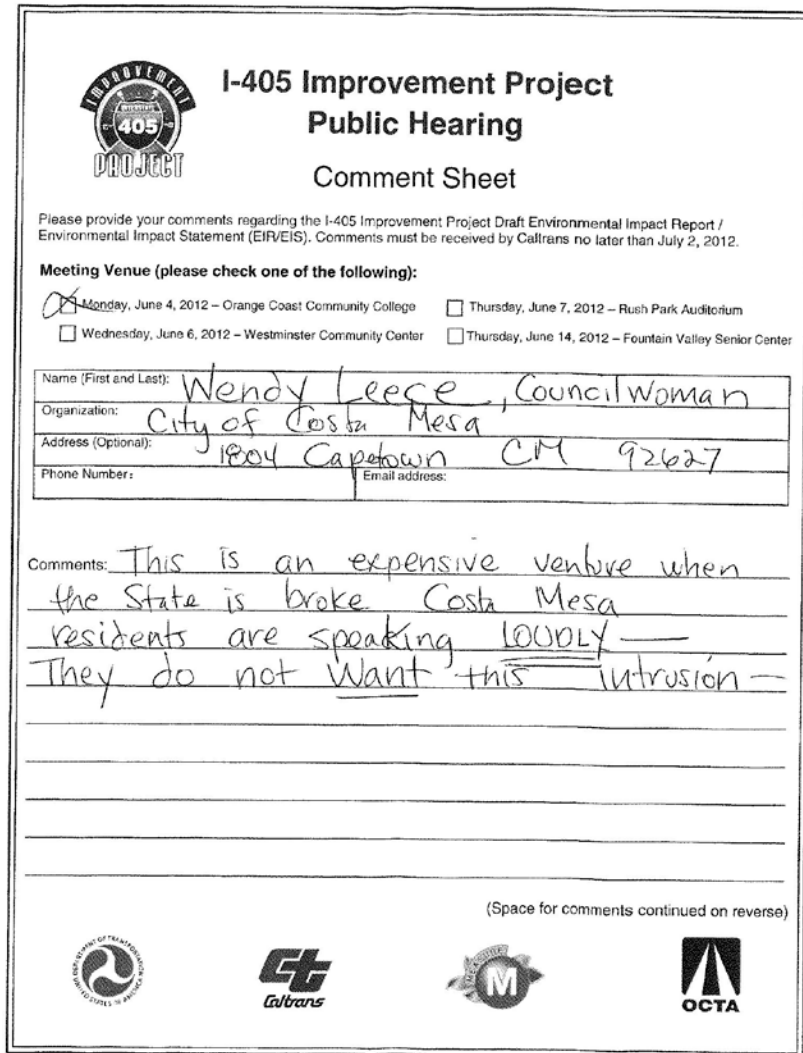 IMPROVEMENT
INTERSTATE
405
PROJECT
I-405 Improvement Project
Public Hearing
Comment Sheet
Please provide your comments regarding the I-405 Improvement Project Draft Environmental Impact Report /
Environmental Impact Statement (EIR/EIS). Comments must be received by Caltrans no later than July 2, 2012.
Meeting Venue (please check one of the following):
Monday, June 4, 2012 – Orange Coast Community College
Thursday, June 7, 2012 – Rush Park Auditorium
Wednesday, June 6, 2012 – Westminster Community Center
Thursday, June 14, 2012 – Fountain Valley Senior Center
Name (First and Last): Wendy Leece, Councilwoman
Organization: City of Costa Mesa
Address (Optional): 1804 Capetown CM 92627
Phone Number:
Email address:
Comments: This is an expensive venture when
the State is broke Costa Mesa
residents are speaking LOUDLY —
They do not want this intrusion —
(Space for comments continued on reverse)
DEPARTMENT OF TRANSPORTATION
UNITED STATES OF AMERICA
Ct
Caltrans
MEASURE
M
OCTA